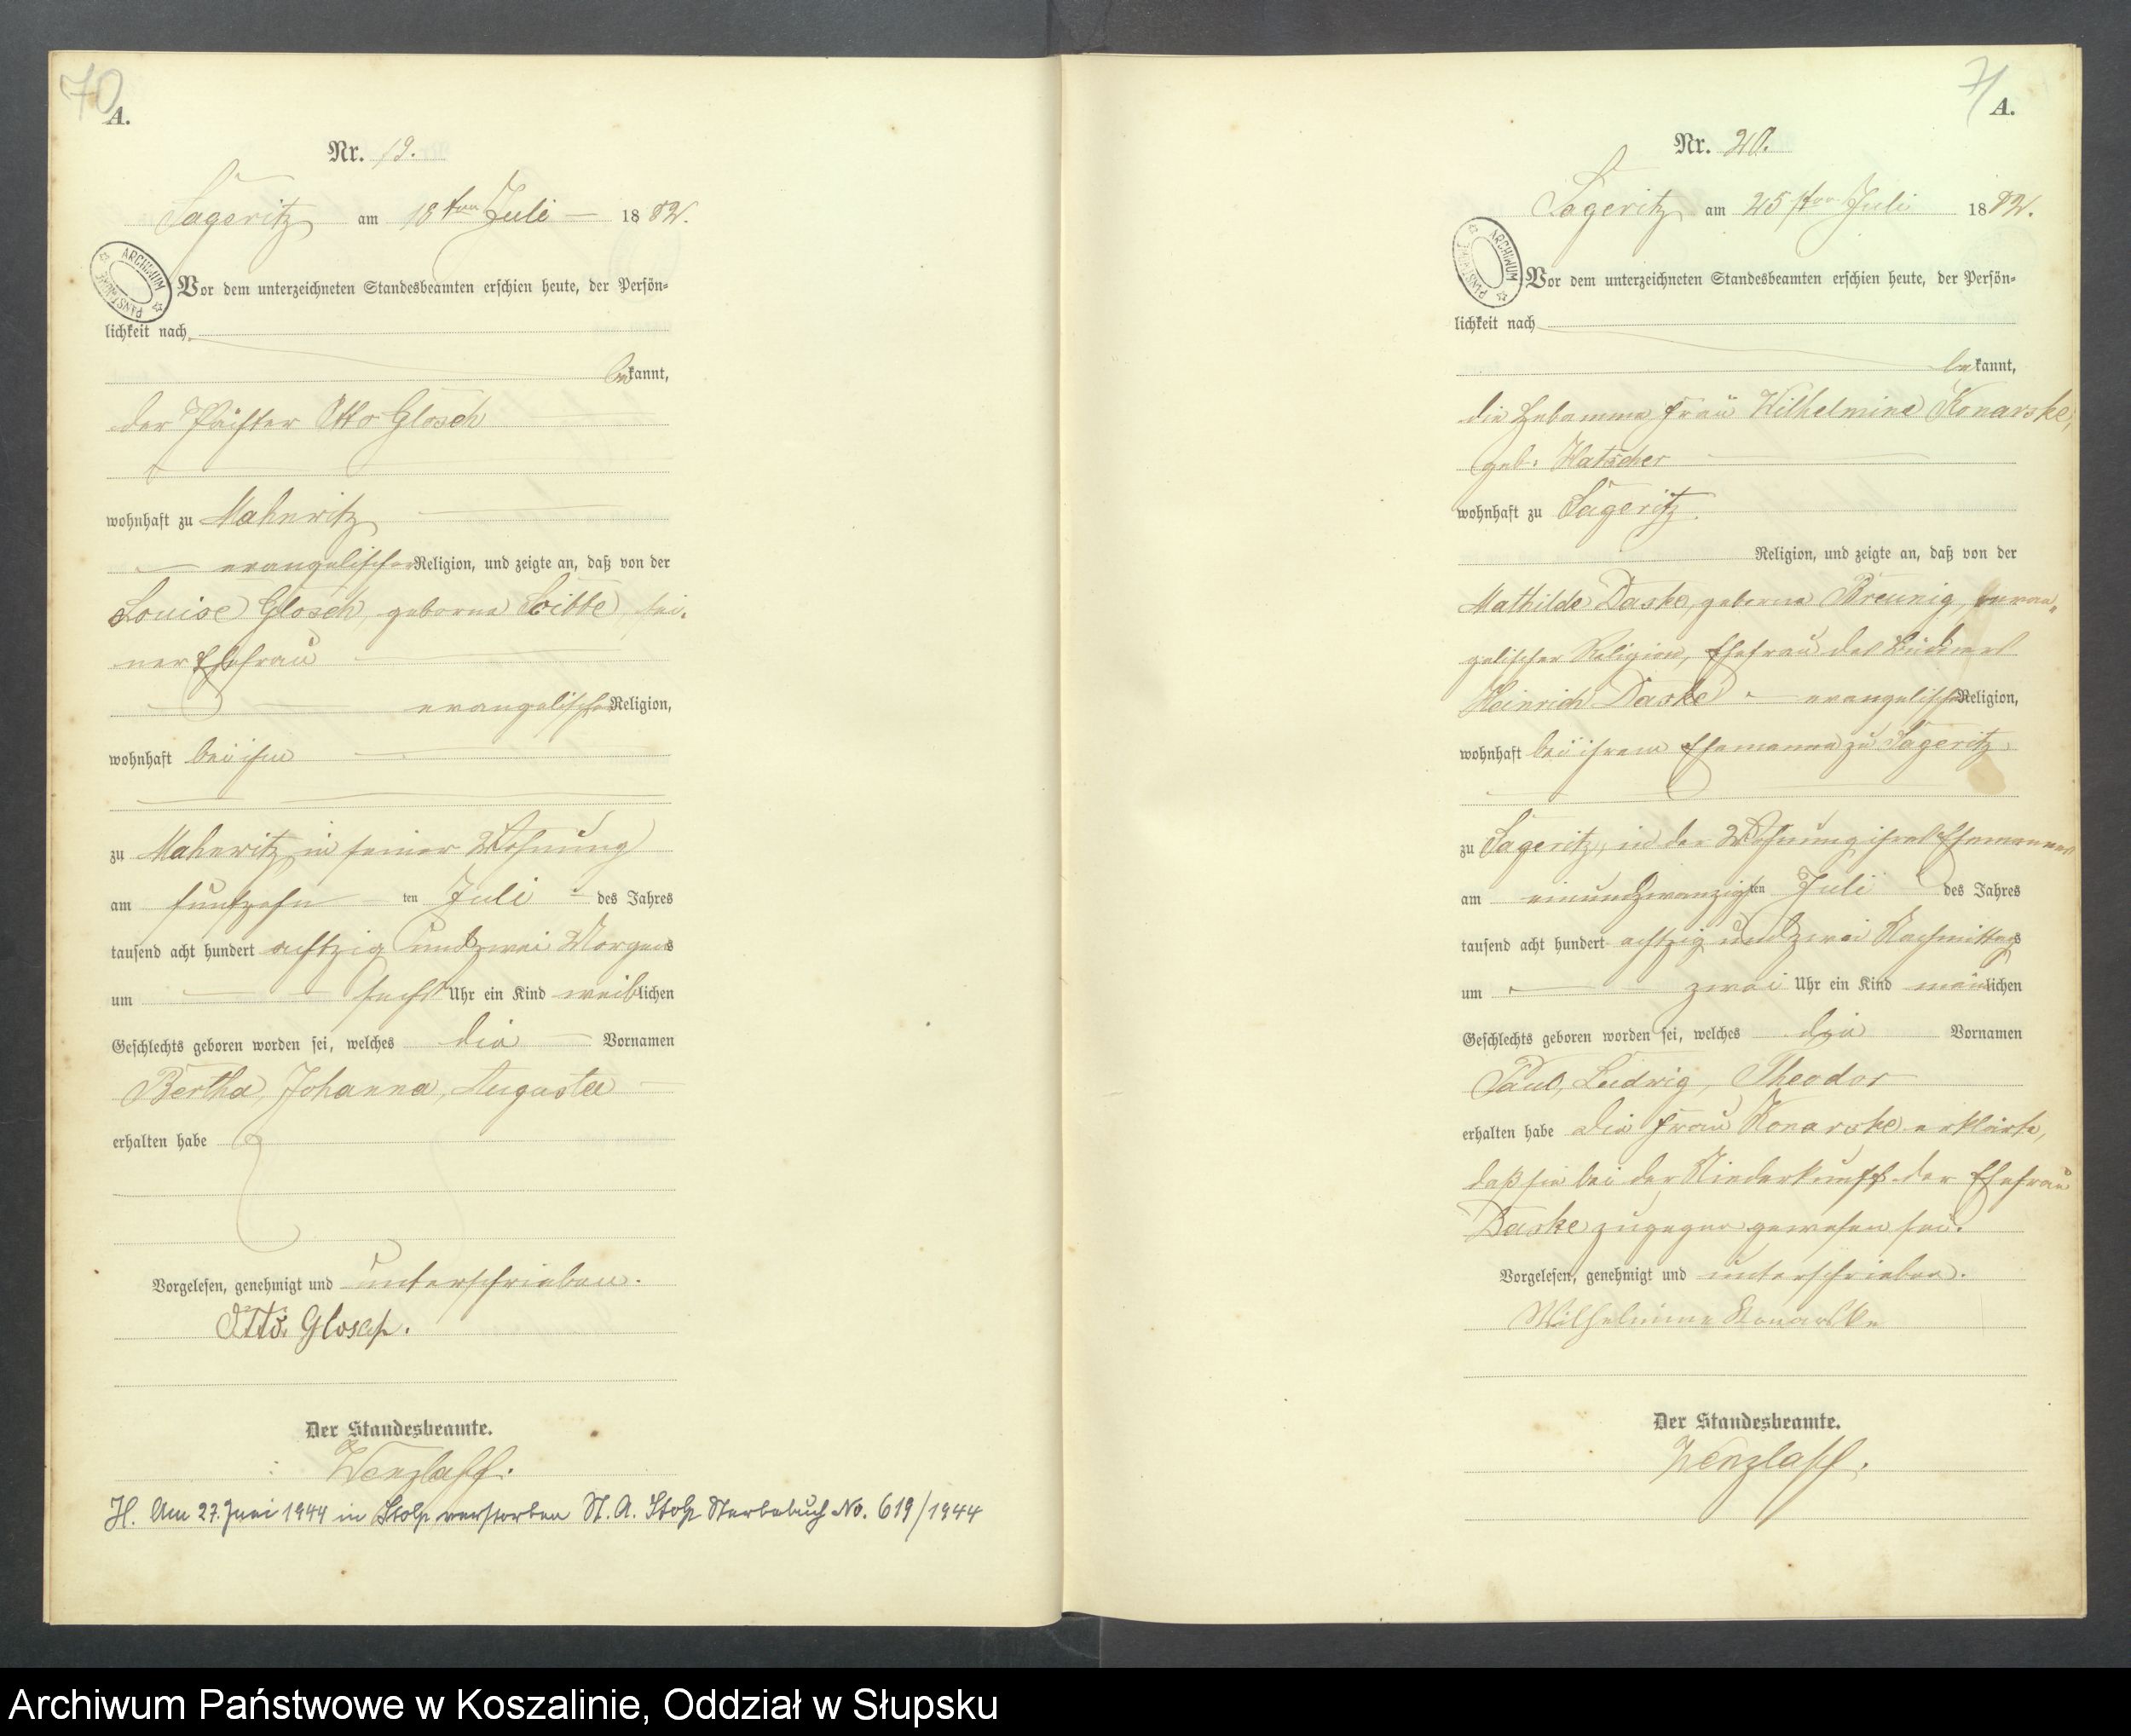 70
A.
Nr. 19.
Sageritz am 18ten Juli 1882.
ARCHIWUM PAŃSTWOWE
Vor dem unterzeichneten Standesbeamten erschien heute, der Persön-
lichkeit nach
bekannt,
der Pächter Otto Glosch
wohnhaft zu Mahnwitz
evangelischer Religion, und zeigte an, daß von der
Louise Glosch, geborne sei-
ner Ehefrau
evangelischer Religion,
wohnhaft bei ihm
zu Mahnwitz in seiner Wohnung
am funfzehn ten Juli des Jahres
tausend acht hundert achtzig und zwei Morgens
um sechs Uhr ein Kind weiblichen
Geschlechts geboren worden sei, welches die Vornamen
Bertha, Johanna, Auguste
erhalten habe
Vorgelesen, genehmigt und unterschrieben.
Otto Glosch.
Der Standesbeamte.
Wenzlaff.
H. Am 27. Juni 1944 in Stolp verstorben St. A. Stolp Sterbebuch No. 619/1944
71
A.
Nr. 20.
Sageritz am 25ten Juli 1882.
ARCHIWUM PAŃSTWOWE
Vor dem unterzeichneten Standesbeamten erschien heute, der Persön-
lichkeit nach
bekannt,
die Hebamme Frau Wilhelmine Konarske,
geb. Hatscher
wohnhaft zu Sageritz.
Religion, und zeigte an, daß von der
Mathilde Daske, geborne Breunig, evan-
gelischer Religion, Ehefrau des Büdners
Heinrich Daske evangelischer Religion,
wohnhaft bei ihrem Ehemanne zu Sageritz
zu Sageritz, in der Wohnung ihres Ehemannes
am einundzwanzigsten Juli des Jahres
tausend acht hundert achtzig und zwei Nachmittags
um zwei Uhr ein Kind männlichen
Geschlechts geboren worden sei, welches die Vornamen
Paul, Ludwig, Theodor
erhalten habe die Frau Konarske erklärte,
daß sie bei der Niederkunft der Ehefrau
Daske zugegen gewesen sei.
Vorgelesen, genehmigt und unterschrieben.
Wilhelmine Konarske
Der Standesbeamte.
Wenzlaff.
Archiwum Państwowe w Koszalinie, Oddział w Słupsku